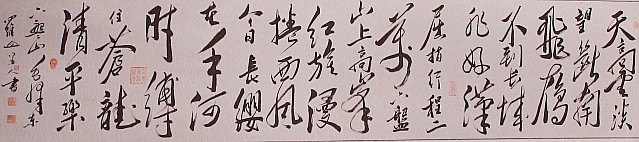 天高雲淡
望斷南
飛雁
不到長城
非好漢
屈指行程二
萬六盤
山上高峰
紅旗漫
捲西風
今日長纓
在手何
時縛
住蒼龍
清平樂
六盤山毛澤東
山人書